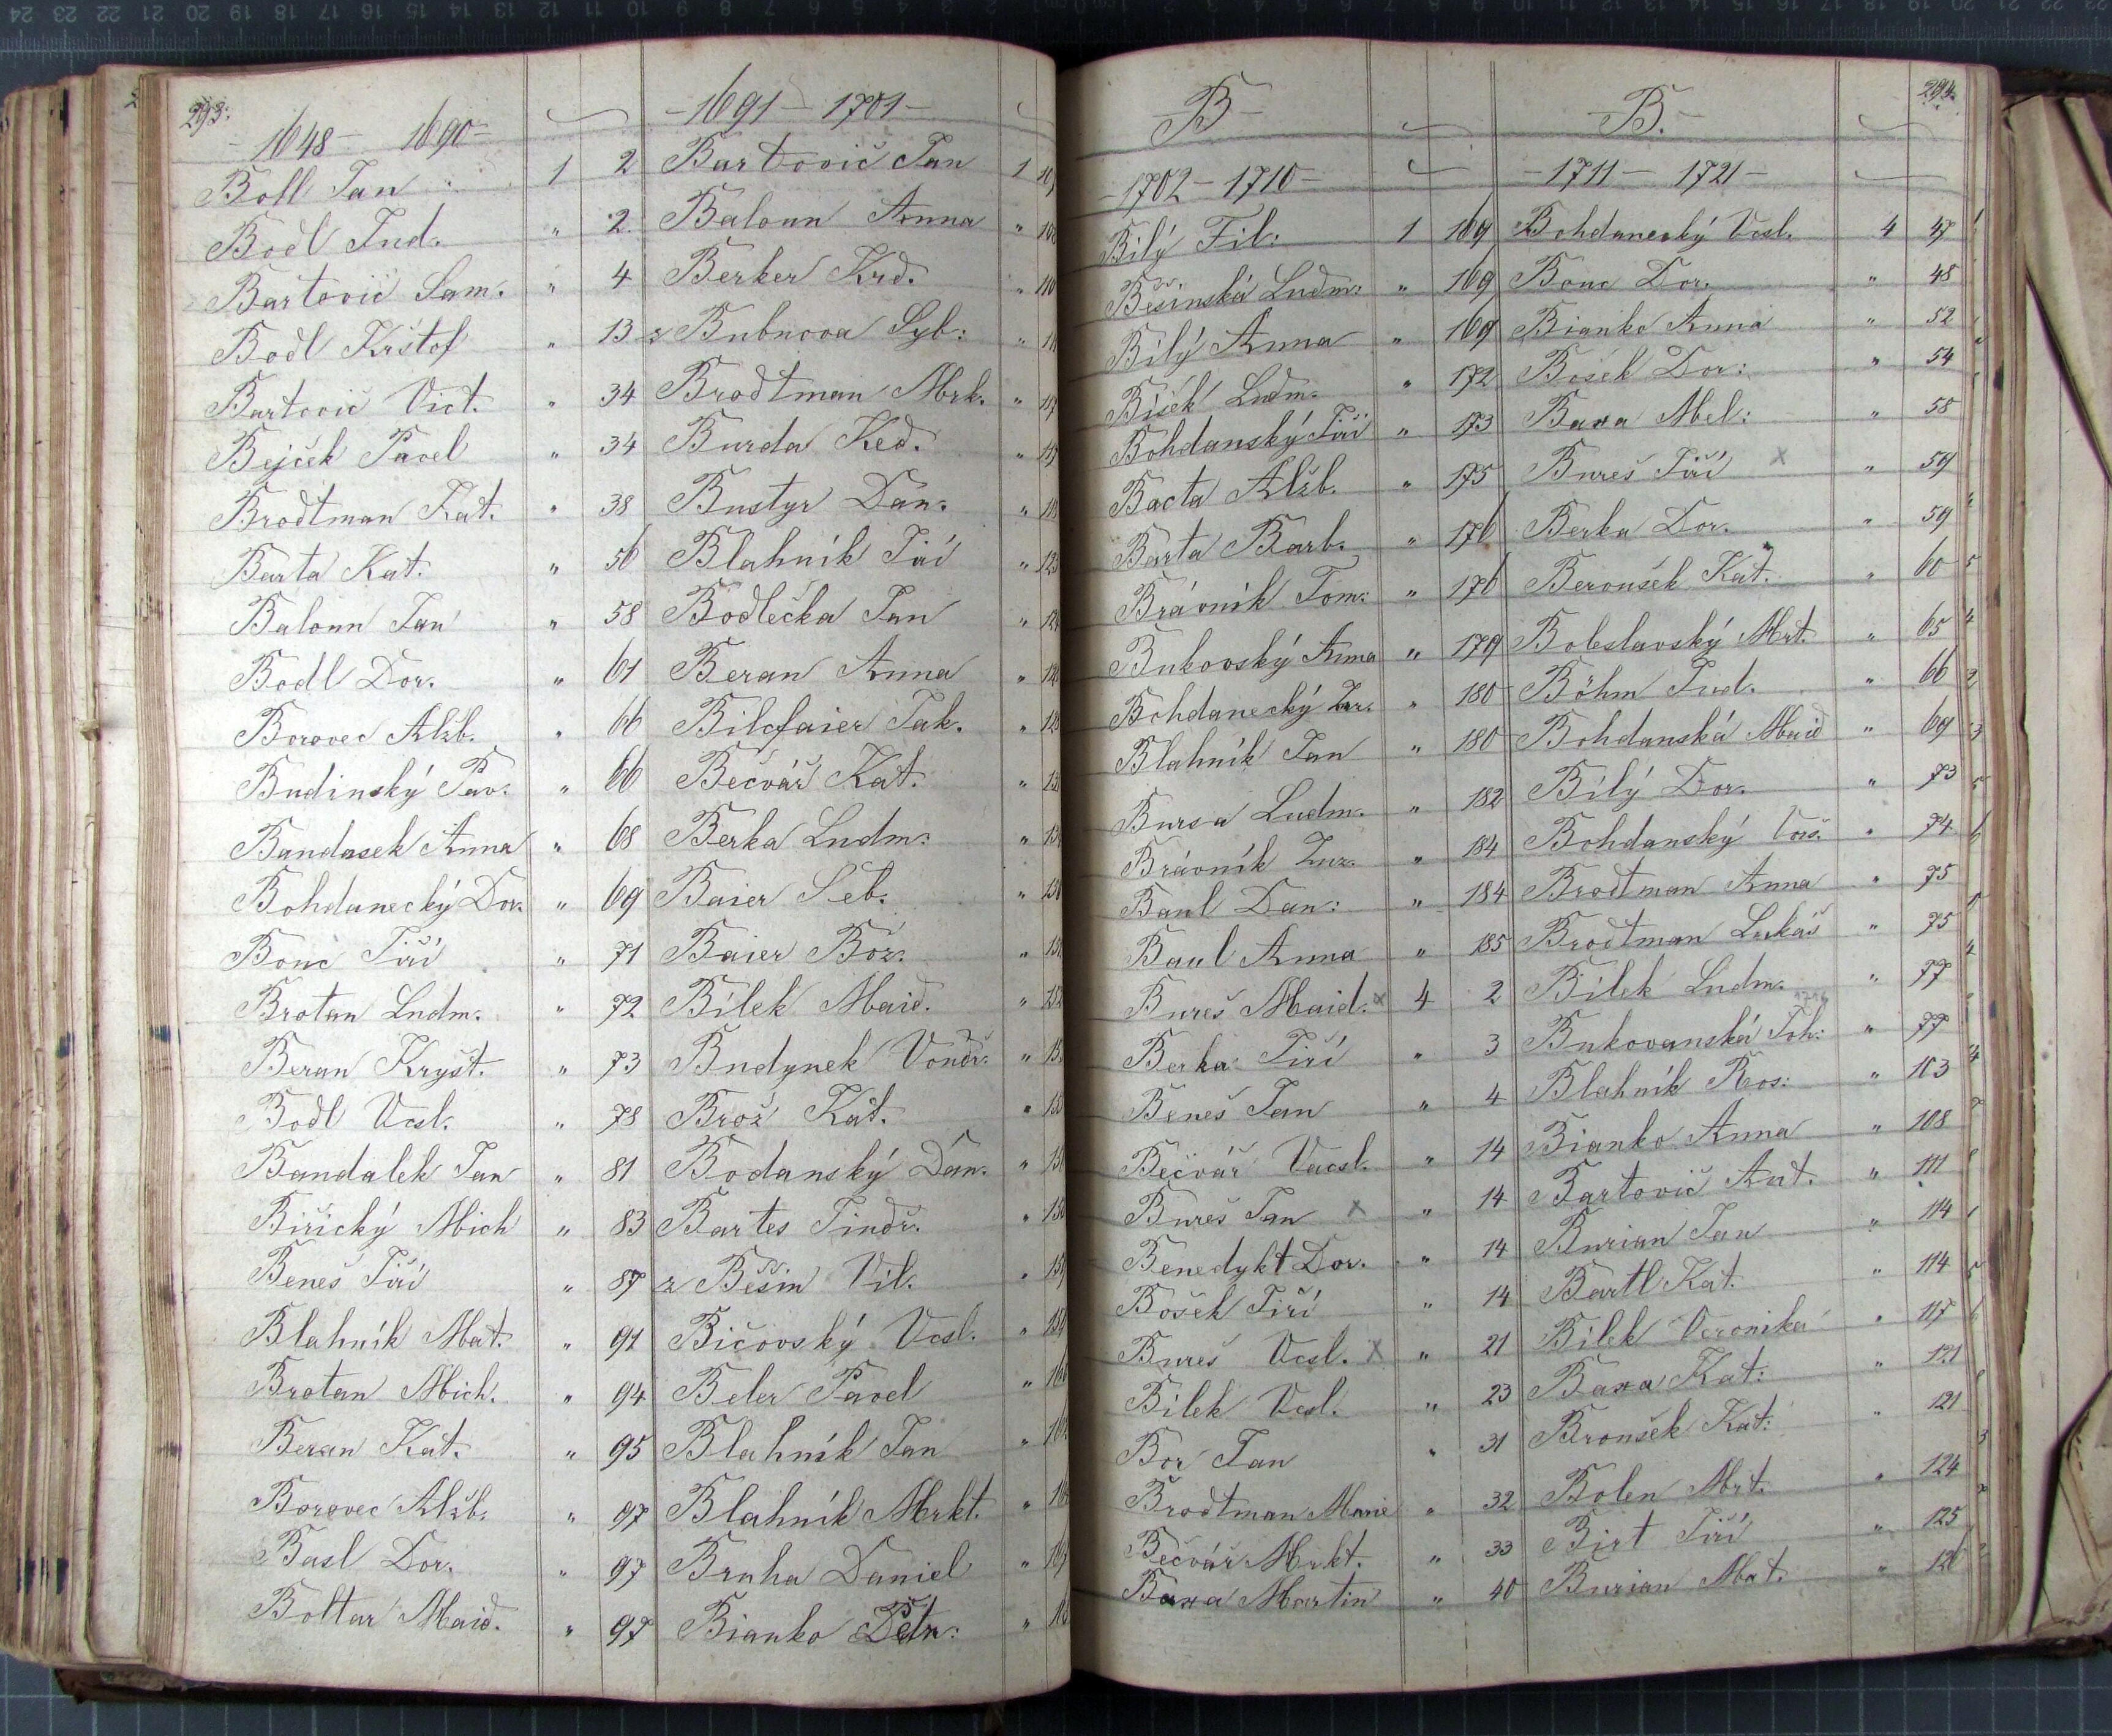 293.
-1648- 1690-
Boll Jan 1 2
Bodl Jud. " 2.
Bartovič Sam. " 4
Bodl Krištof " 13
Bartovič Vict. " 34
Bejček Pavel " 34
Brodtman Kat. " 38
Barta Kat. " 56
Baloun Jan " 58
Bodl Dor. " 61
Borovec Alžb. " 66
Budinský Pav. " 66
Bandasek Anna " 68
Bohdanecký Dor. " 69
Bouc Jiří " 71
Brotan Ludm. " 72
Beran Kryšt. " 73
Bodl Vcsl. " 78
Bandalek Jan " 81
Biřický Mich " 83
Beneš Jiří " 87
Blahník Mat. " 91
Brotan Mich. " 94
Beran Kat. " 95
Borovec Alžb. " 97
Basl Dor. " 97
Boltar Maid. " 97
-1691- 1701-
Bartovič Jan 1
Baloun Anna "
Berker Krd. "
z Bubnova Syb: "
Brodtman Mrk. "
Burda Ked. "
Bustyr Dan. "
Blahník Jiří "
Bodlečka Jan "
Beran Anna "
Bilefaier Jak. "
Bečvář Kat. "
Berka Ludm: "
Baier Seb. "
Baier Bož. "
Bílek Maid. "
Budynek Vondř. "
Brož Kat. "
Bodanský Dan. "
Bartes Jindř. "
z Běšin Vil. "
Bičovský Vcsl. "
Beler Pavel "
Blahník Jan "
Blahník Mrkt. "
Bruha Daniel "
Bianko Petr: "
-B-
-1702-1710-
Bílý Fil: 1 169
Běšinská Ludm: " 169
Bílý Anna " 169
Bíšek Ludm. " 172
Bohdanský Jiří " 173
Bacta Alžb. " 175
Barta Barb. " 176
Brávník Tom: " 176
Bukovský Anna " 179
Bohdanecký " 180
Blahník Jan " 180
Bursa Ludm. " 182
Brávník Zuz. " 184
Baul Dan: " 184
Baul Anna " 185
Bureš Maid. x 4 2
Berka Jiří " 3
Beneš Jan " 4
Bečvář Vacsl. " 14
Bureš Jan x " 14
Benedykt Dor. " 14
Bošek Jiří " 14
Bureš Vcsl. x " 21
Bílek Vcsl. " 23
Bor Jan " 31
Brodtman Marie " 32
Bečvář Mrkt. " 33
Baxa Martin " 40
-B.- 294.
-1711- 1721-
Bohdanecký Vcsl. 4 47
Bouc Dor. " 48
Bianko Anna " 52
Bošek Dor: " 54
Baxa Mel: " 58
Bureš Jiří x " 59
Berka Dor. " 59
Beroušek Kat. " 60
Boleslavský Mrt. " 65
Böhm Jud. " 66
Bohdanská Maid " 69
Bílý Dor. " 73
Bohdanský " 74
Brodtman Anna " 75
Brodtman Lukáš " 75
Bílek Ludm. " 77
Bukovanská Joh: " 77
Blahník Ros: " 103
Bianko Anna " 108
Bartovič Ant. " 111
Burian Jan " 114
Bartl Kat. " 114
Bílek Veronika " 117
Baxa Kat: " 121
Broušek Kat: " 121
Bolen Mrt. " 124
Birt Jiří " 125
Burian Mat. " 126